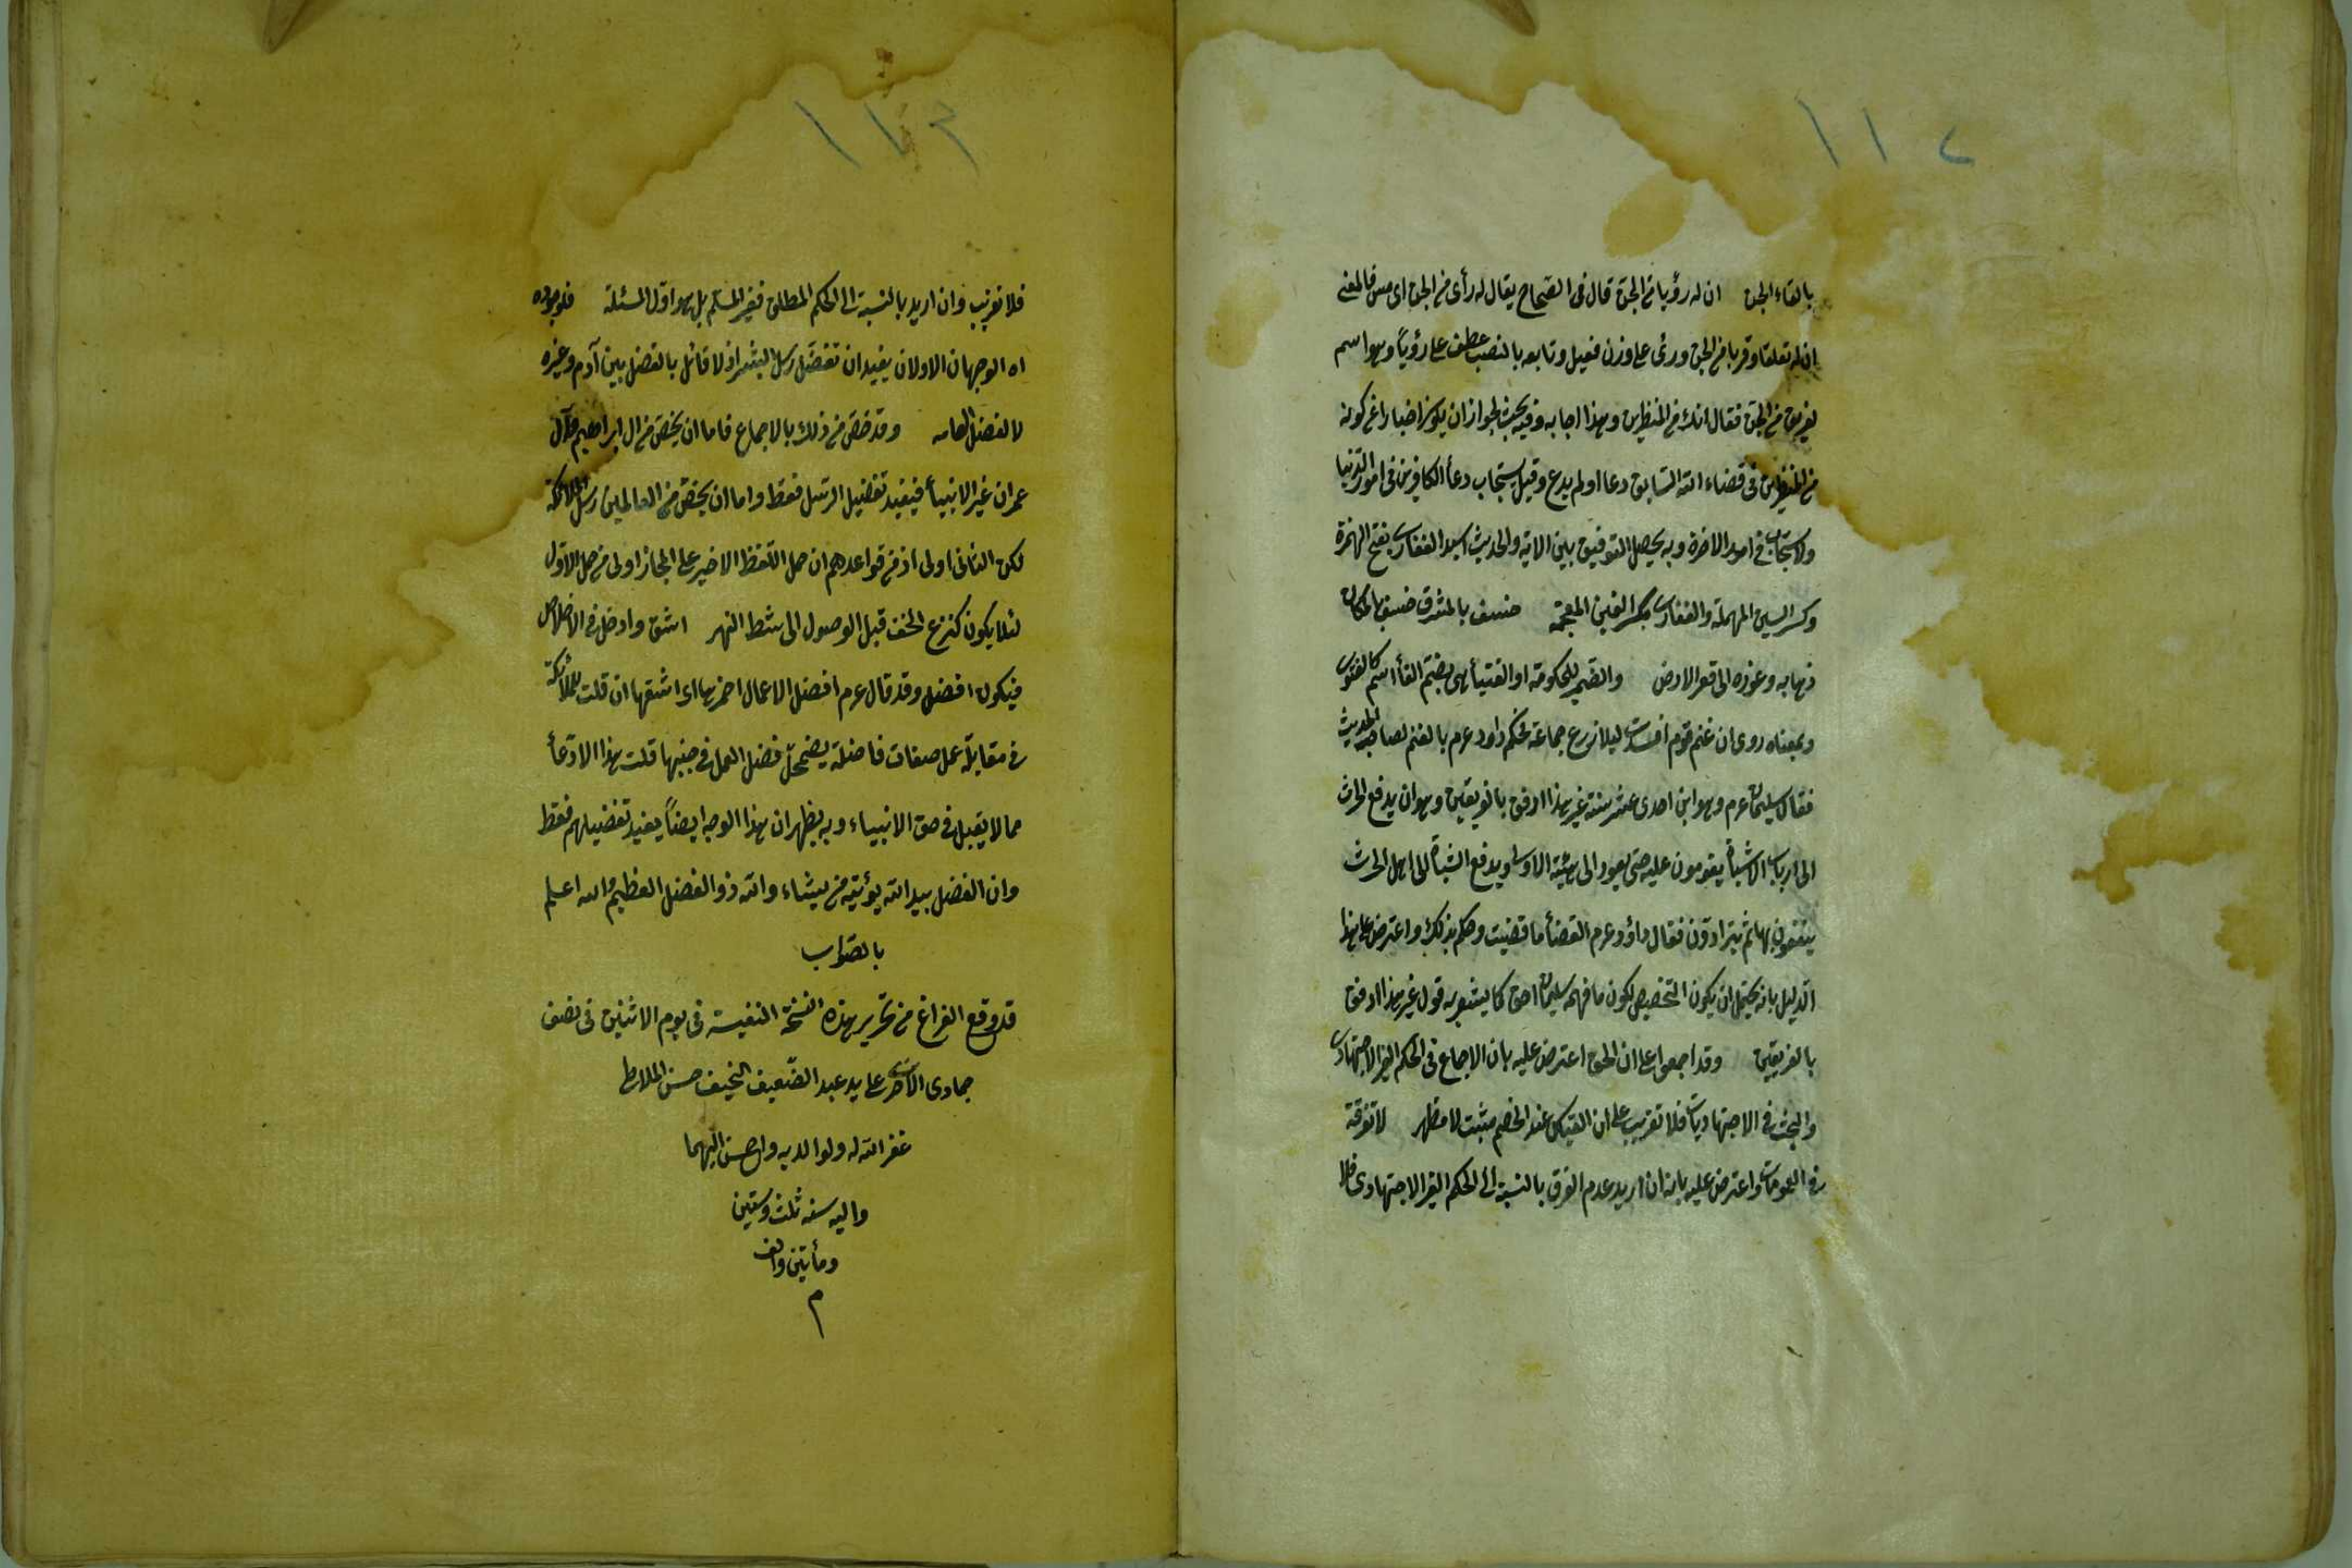 ١١٢
بالقاء الجن ان له رؤيا من الجن قال فى الصحاح يقال له رأى من الجن اى مس فالمعنى
ان له تعلقا وقربا من الجن ورئى على وزن فعيل وتابعه بالنصب عطف على رؤياً وهو اسم
لفريق من الجن فقال انك من المنظرين وهذا اجابه وفيه بحث لجواز ان يكون اخبارا عن كونه
من المنظرين فى قضاء الله السابق دعا اولم يدع وقيل يستجاب دعأ الكافرين فى امور الدنيا
ولا يستجاب فى امور الاخرة وبه يحصل التوفيق بين الاية والحديث اسيد الغفارى بفتح الهمزة
وكسر السين المهملة والغفارى بكسر الغين المعجمة خسف بالمشرق خسف المكان
ذهابه وغوره الى قعر الارض والضمير للحكومة او الفتيأ هى بضم الفأ اسم كالفتوى
وبمعناه روى ان غنم قوم افسدت ليلا زرع جماعة فحكم داود عرم بالغنم لصاحب الحديث
فقال سليمان عرم وهو ابن احدى عشر سنة غير هذا ارفق بالفريقين وهو ان يدفع الحرث
الى ارباب الشياة يقومون عليه حتى يعود الى هيئته الاولى ويدفع الشياة الى اهل الحرث
ينتفعون بها ثم يترادون فقال داؤد عرم القضأ ما قضيت وحكم بذلك واعترض على هذا
الدليل بانه يحتمل ان يكون التخصيص لكون ما فهمه سليمان احق كما يشعر به قول غير هذا ارفق
بالفريقين وقد اجمعوا على ان الحق اعترض عليه بان الاجماع فى الحكم الغير الاجتهادى
والبحث فى الاجتهاديات فلا تقريب على ان القياس عند الخصم مثبت لا مظهر لا تفرقة
فى العمومات واعترض عليه بانه ان اريد عدم الفرق بالنسبة الى الحكم الغير الاجتهادى فلا
١١٣
فلا تقريب وان اريد بالنسبة الى الحكم المطلق فغير المسلم بل هو اول المسئلة فلوجوه
اه الوجهان الاولان يفيدان تفضيل رسل البشر اذ لا قائل بالفضل بين آدم وغيره
لا لفضل العامه وقد خص من ذلك بالاجماع فاما ان يخص من ال ابراهيم وآل
عمران غير الانبيأ فيفيد تفضيل الرسل فقط واما ان يخص من العالمين رسل الملائكة
لكن الثانى اولى اذ من قواعدهم ان حمل اللفظ الاخير على المجاز اولى من حمل الاول
لئلا يكون كنزع الخف قبل الوصول الى شط النهر اشق وادخل فى الاخلاص
فيكون افضل وقد قال عرم افضل الاعمال احمزها اى اشقها ان قلت للملائكة
فى مقابلة عمل صفات فاضلة يضمحل فضل العمل فى جنبها قلت هذا الادعأ
مما لا يقبل فى حق الانبياء وبه يظهر ان هذا الوجه ايضاً يفيد تفضيلهم فقط
وان الفضل بيد الله يؤتيه من يشاء والله ذو الفضل العظيم والله اعلم
بالصواب
قد وقع الفراغ من تحرير هذه النسخة النفيسة فى يوم الاثنين فى نصف
جمادى الاخرى على يد عبد الضعيف النحيف حسن
غفر الله له ولوالديه واحسن اليهما
واليه سنه ثلث وستين
ومأتين والف
م